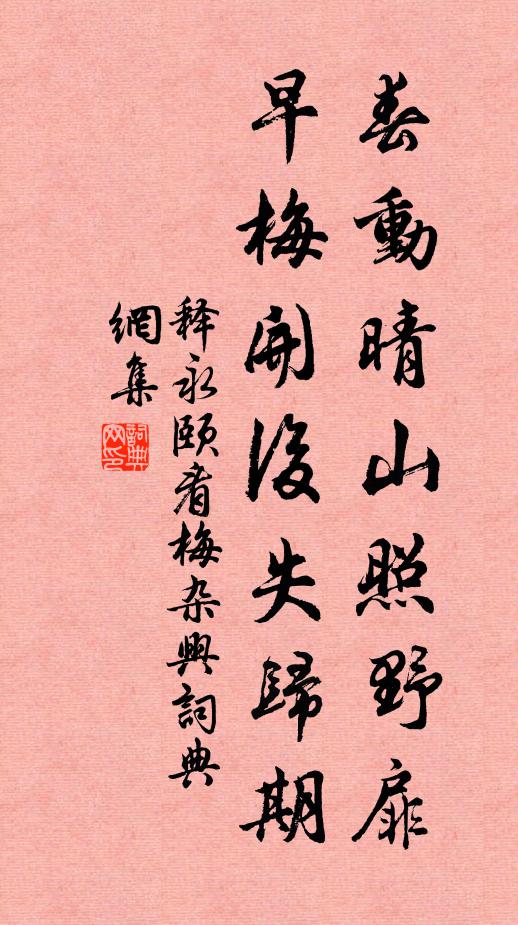 春動晴山照野扉
早梅開後失歸期
释永頤看梅杂興詞典
網集
詞典
网印